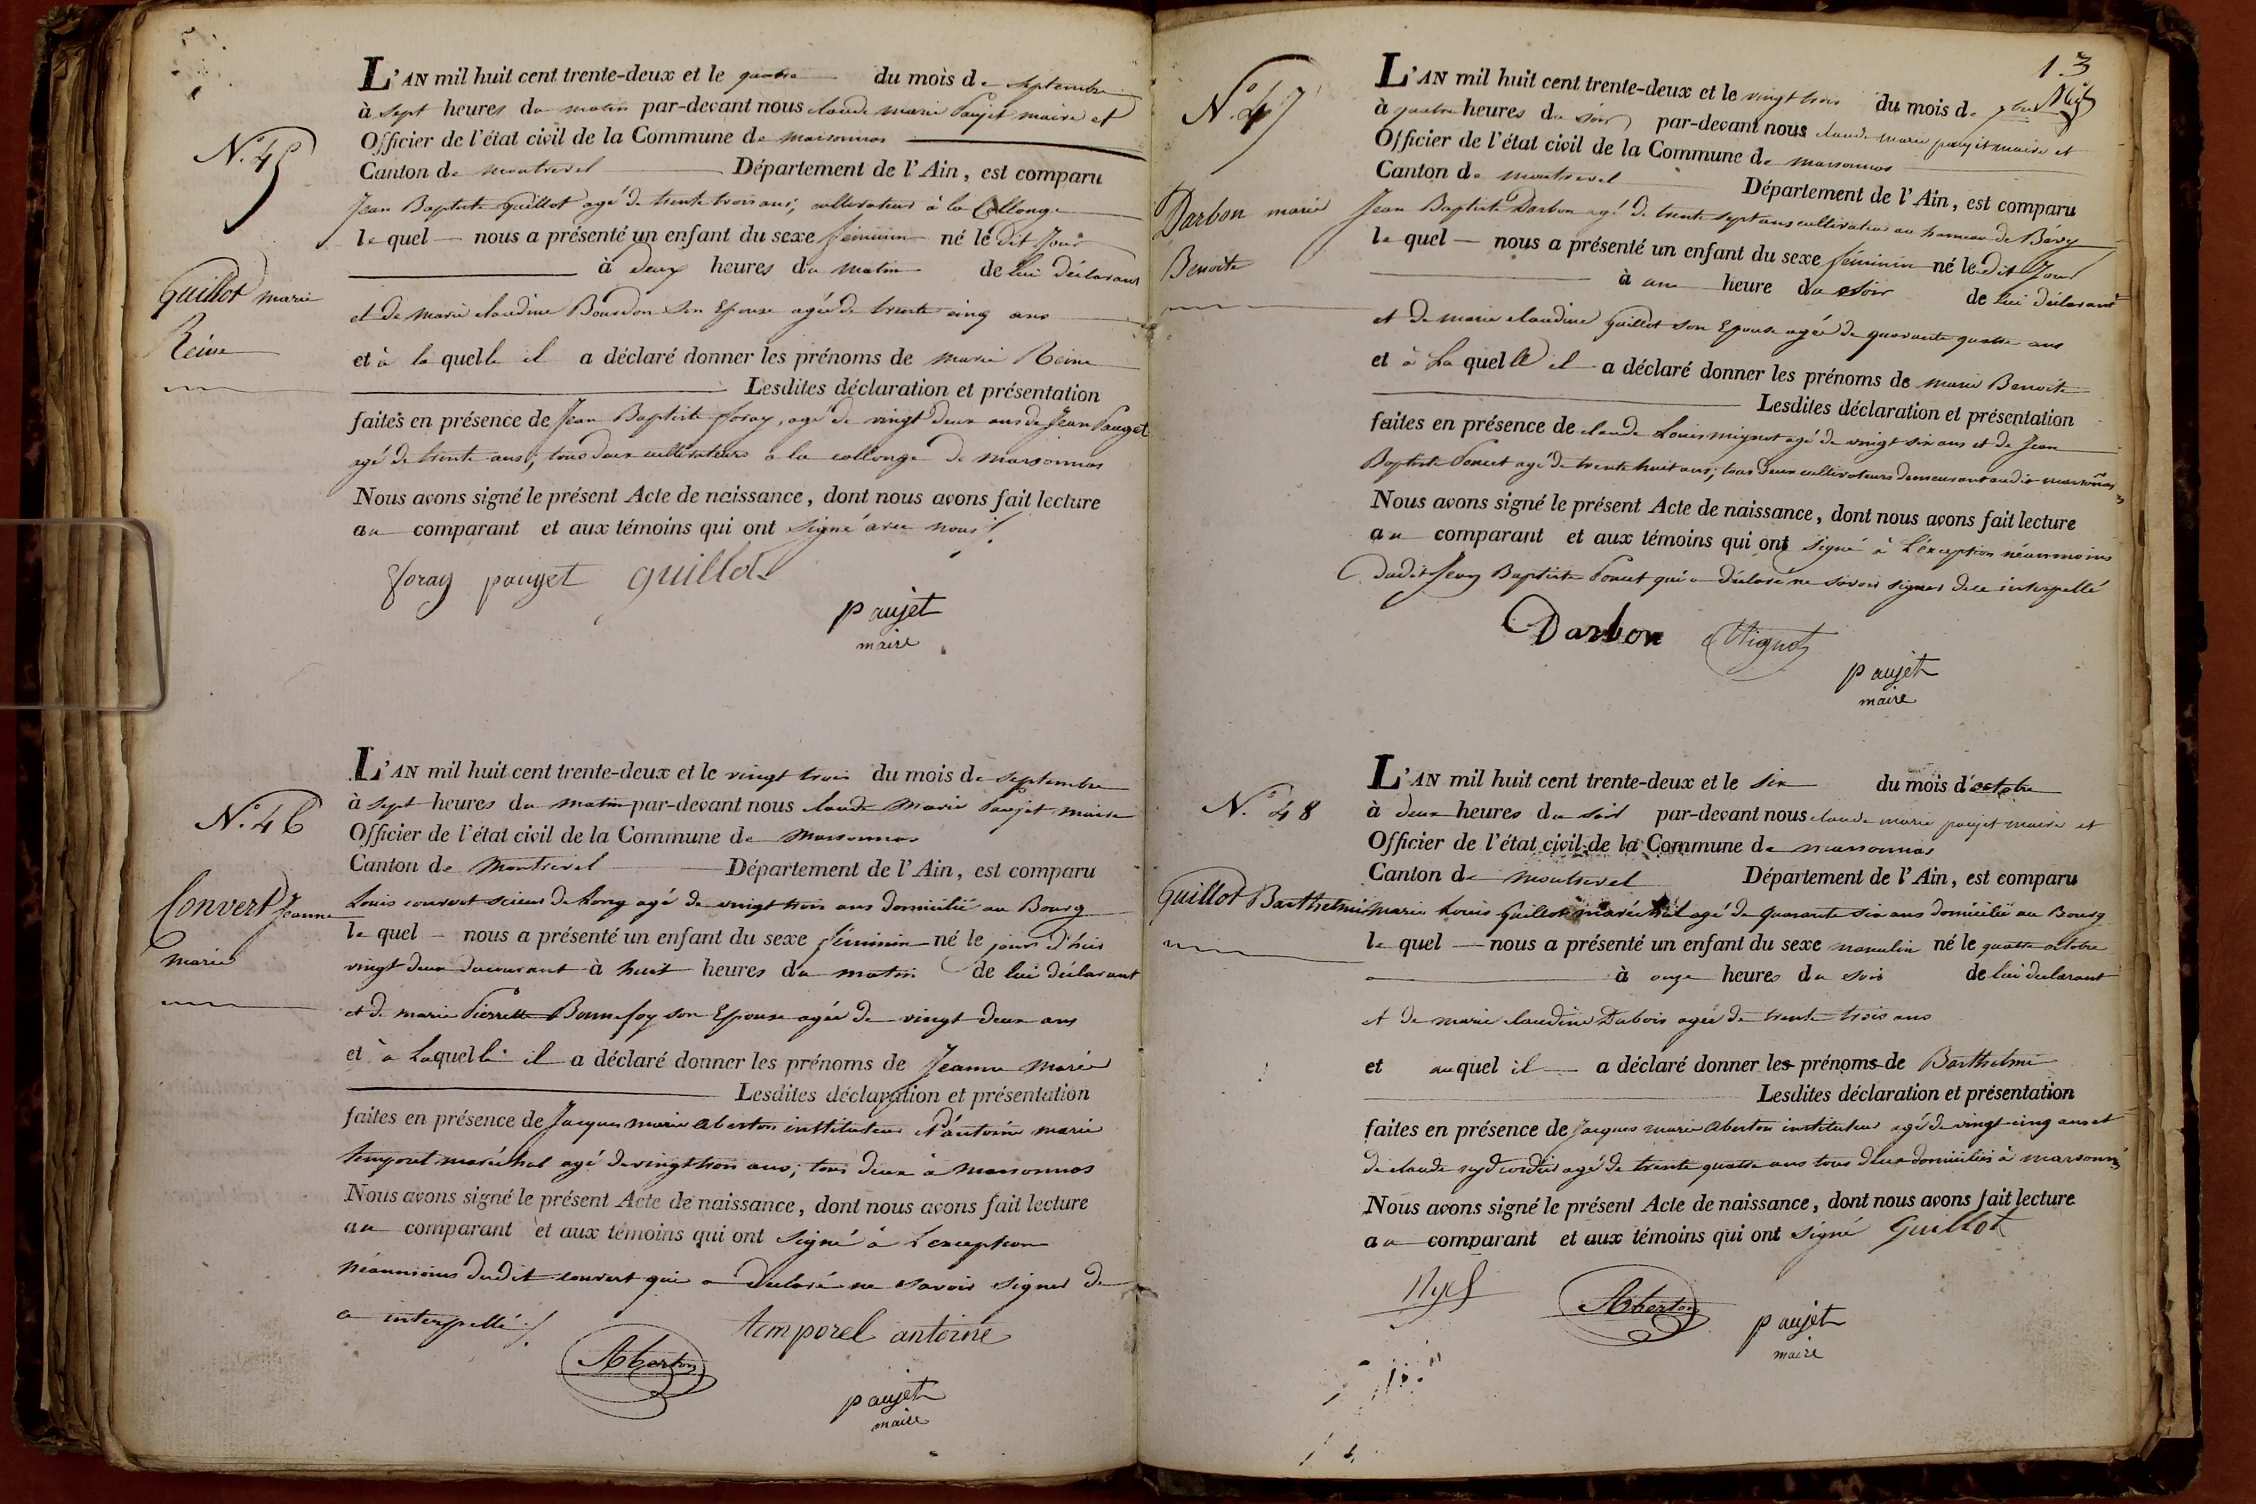 N.° 45
Guillot marie
Reine
L'AN mil huit cent trente-deux et le quatre du mois de septembre
à sept heures du matin par-devant nous claude marie Paujet maire et
Officier de l'état civil de la Commune de marsonnas
Canton de montrevel Département de l'Ain, est comparu
Jean Baptiste Guillot agé de trente trois ans, cultivateur à la Collonge
le quel nous a présenté un enfant du sexe féminin né le dit Jour
à deux heures du matin de lui déclarant
et de marie claudine Bourdon son Epouse agée de trente cinq ans
et à la quelle il a déclaré donner les prénoms de marie Reine
Lesdites déclaration et présentation
faites en présence de Jean Baptiste foray, agé de vingt deux ans de Jean Pauget
agé de trente ans, tous deux cultivateurs à la collonge de marsonnas
Nous avons signé le présent Acte de naissance, dont nous avons fait lecture
au comparant et aux témoins qui ont signé avec nous
foray pauget guillot
paujet
maire
N.° 46
Convert Jeanne
marie
L'AN mil huit cent trente-deux et le vingt trois du mois de septembre
à sept heures du matin par-devant nous claude Marie Paujet maire
Officier de l'état civil de la Commune de Marsonnas
Canton de Montrevel Département de l'Ain, est comparu
Louis convert scieur de Long agé de vingt trois ans domicilié au Bourg
le quel nous a présenté un enfant du sexe féminin né le jours d'hier
vingt deux du courant à huit heures du matin de lui déclarant
et de marie Pierrette Bonnefoy son Epouse agée de vingt deux ans
et à laquelle il a déclaré donner les prénoms de Jeanne Marie
Lesdites déclaration et présentation
faites en présence de Jacques marie Aberton instituteur et d'antoine marie
temporel maréchal agé de vingt trois ans, tous deux à Marsonnas
Nous avons signé le présent Acte de naissance, dont nous avons fait lecture
au comparant et aux témoins qui ont signé à l'exception
néanmoins dudit convert qui a déclaré ne savoir signer de
ce interpellé
Aberton temporel antoine
paujet
maire
13
N.° 47
Darbon marie
Benoite
L'AN mil huit cent trente-deux et le vingt trois du mois de 7bre
à quatre heures du soir par-devant nous claude marie paujet maire et
Officier de l'état civil de la Commune de marsonnas
Canton de montrevel Département de l'Ain, est comparu
Jean Baptiste Darbon agé de trente sept ans cultivateur au hameau de Bévy
le quel nous a présenté un enfant du sexe féminin né le dit Jour
à une heure du soir de lui déclarant
et de marie claudine Guillot son Epouse agée de quarante quatre ans
et à la quelle il a déclaré donner les prénoms de marie Benoite
Lesdites déclaration et présentation
faites en présence de claude Louis mignot agé de vingt six ans et de Jean
Baptiste Poncet agé de trente huit ans, tous deux cultivateurs demeurant audit marsonnas
Nous avons signé le présent Acte de naissance, dont nous avons fait lecture
au comparant et aux témoins qui ont signé à l'exception néanmoins
dudit Jean Baptiste Poncet qui a déclaré ne savoir signer de ce interpellé
Darbon Mignot
paujet
maire
N.° 48
Guillot Barthelmi
L'AN mil huit cent trente-deux et le six du mois d'octobre
à deux heures du soir par-devant nous claude marie paujet maire et
Officier de l'état civil de la Commune de marsonnas
Canton de Montrevel Département de l'Ain, est comparu
Marie Louis Guillot maréchal agé de quarante six ans domicilié au Bourg
le quel nous a présenté un enfant du sexe masculin né le quatre octobre
à onze heures du soir de lui declarant
et de marie claudine Dubois agée de trente trois ans
et auquel il a déclaré donner les prénoms de Barthelmi
Lesdites déclaration et présentation
faites en présence de Jacques marie Aberton instituteur agé de vingt cinq ans et
de claude agé de trente quatre ans tous deux domiciliés à marsonnas
Nous avons signé le présent Acte de naissance, dont nous avons fait lecture
au comparant et aux témoins qui ont signé Guillot
Aberton paujet
maire